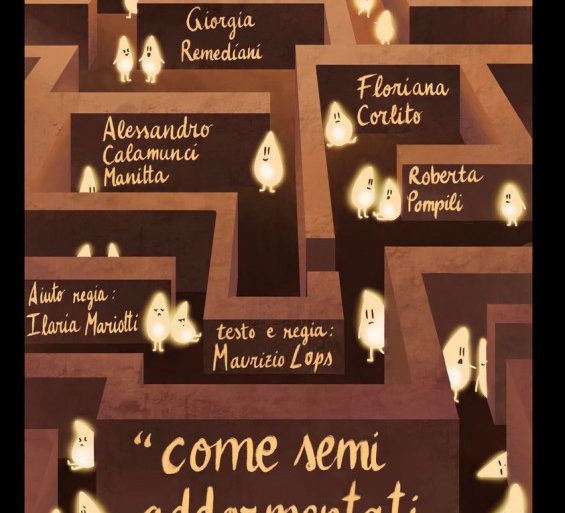 Giorgia
Remediani
Floriana
Corlito
Alessandro
Calamunci
Manitta
Roberta
Pompili
Aiuto regia:
Ilaria Mariotti
testo e regia:
Maurizio Lops
"come semi
addormentati